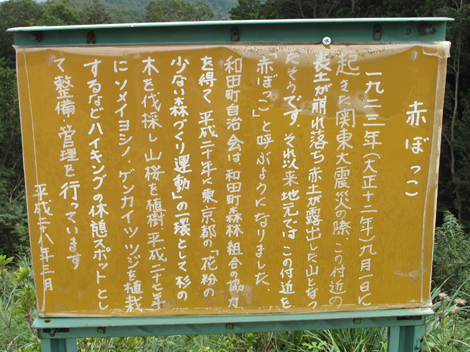 赤ぼっこ
一九二三年(大正十二年)九月一日に
起きた関東大震災の際、この付近の
表土が崩れ落ち赤土が露出した山となっ
たそうです。それ以来地元では、この付近を
「赤ぼっこ」と呼ぶようになりました。
和田町自治会は和田町森林組合の協力
を得て、平成二十年に東京都の「花粉の
少ない森づくり運動」の一環として杉の
木を伐採し山桜を植樹、平成二十七年
にソメイヨシノ・ゲンカイツツジを植栽
するなどハイキングの休憩スポットとし
て整備・管理を行っています
平成二八年三月